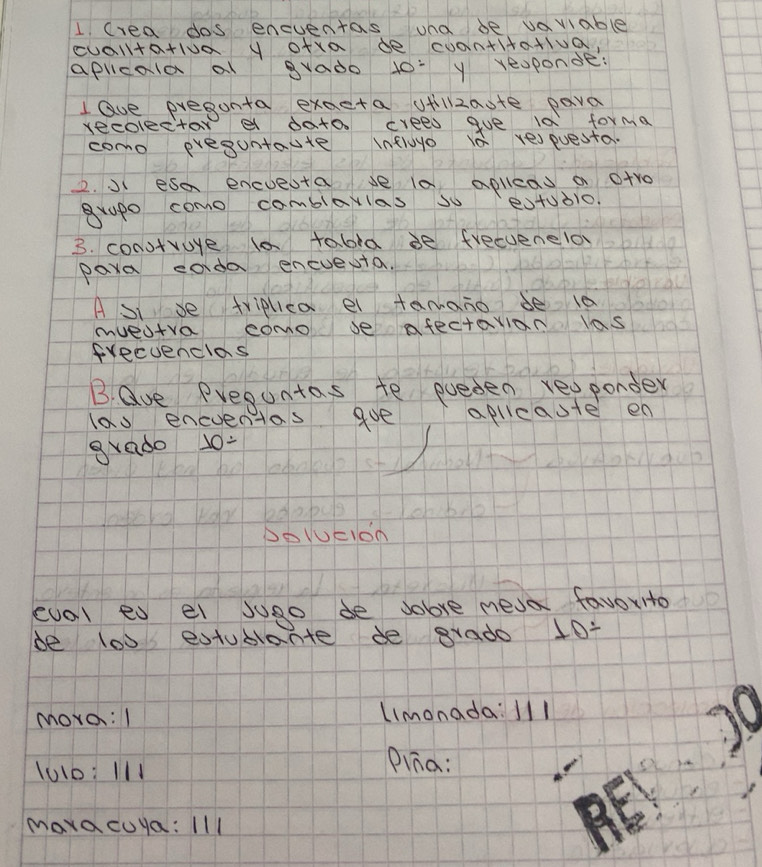 1. Crea dos encuentas una de variable
cualitativa y otra de cuantitativa,
aplicala al grado 10= y responde:
1 Que pregunta exacta utilizaste para
recolectar el data crees que la forma
como preguntaste influyo la respuesta.
2. Si esa encuesta se la aplicas a otro
grupo como cambiarias su estudio.
3. construye la tabla de frecuenela
para cada encuesta.
A si se triplica el tamaño de la
muestra como se afectarian las
frecuencias
B. Que Preguntas te pueden responder
las encuentas que aplicaste en
grado 10=
Solución
cual es el Jugo de sobre mesa favorito
de los estudiante de grado 10=
mora: I
Limonada: III
lulo: III
Piña:
maracuya: III